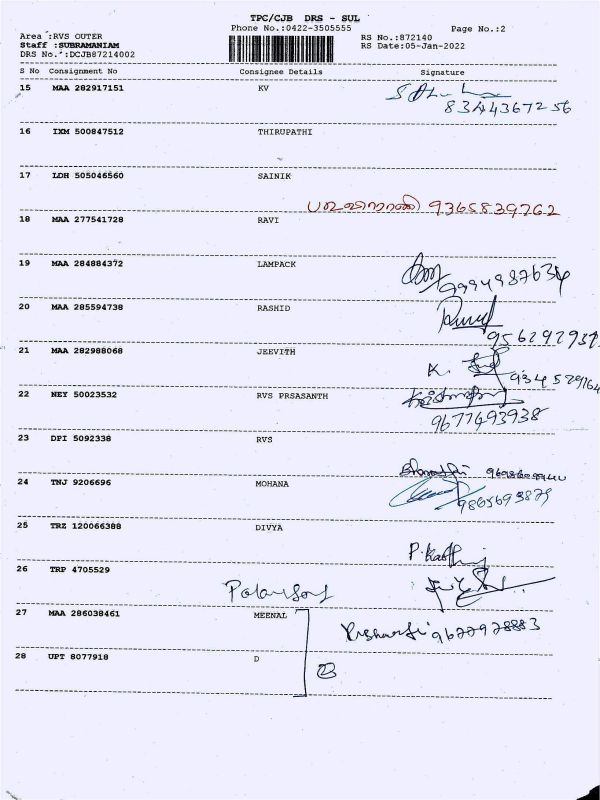 TPC/CJB DRS - SUL
Phone No.:0422-3505555
Page No.:2
Area :RVS OUTER
RS No.:872140
Staff :SUBRAMANIAM
RS Date:05-Jan-2022
DRS No.:DCJB87214002
S No Consignment No Consignee Details Signature
15 MAA 282917151 KV
8344367256
16 IXM 500847512 THIRUPATHI
17 LDH 505046560 SAINIK
9365839762
18 MAA 277541728 RAVI
19 MAA 284884372 LAMPACK
9994987634
20 MAA 285594738 RASHID
21 MAA 282988068 JEEVITH
K.
22 NEY 50023532 RVS PRSASANTH
9677493938
23 DPI 5092338 RVS
24 TNJ 9206696 MOHANA
9865693879
25 TRZ 120066388 DIVYA
26 TRP 4705529
27 MAA 286038461 MEENAL
9677978883
28 UPT 8077918 D